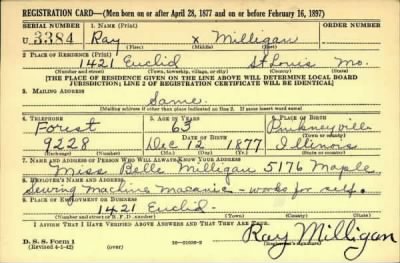 REGISTRATION CARD—(Men born on or after April 28, 1877 and on or before February 16, 1897)
SERIAL NUMBER 1. NAME (Print) ORDER NUMBER
U 3384 Ray x Milligan
(First) (Middle) (Last)
2. PLACE OF RESIDENCE (Print)
1421 Euclid St Louis Mo.
(Number and street) (Town, township, village, or city) (County) (State)
[THE PLACE OF RESIDENCE GIVEN ON THE LINE ABOVE WILL DETERMINE LOCAL BOARD
JURISDICTION; LINE 2 OF REGISTRATION CERTIFICATE WILL BE IDENTICAL]
3. MAILING ADDRESS
Same.
[Mailing address if other than place indicated on line 2. If same insert word same]
4. TELEPHONE 5. AGE IN YEARS 6. PLACE OF BIRTH
Forest 63 Pinkneyville
9228 DATE OF BIRTH (Town or county)
Dec 12 1877 Illinois
(Exchange) (Number) (Mo.) (Day) (Yr.) (State or country)
7. NAME AND ADDRESS OF PERSON WHO WILL ALWAYS KNOW YOUR ADDRESS
Miss Belle Milligan 5176 Maple
8. EMPLOYER'S NAME AND ADDRESS
Sewing Machine - works for self.
9. PLACE OF EMPLOYMENT OR BUSINESS
1421 Euclid.
(Number and street or R. F. D. number) (Town) (County) (State)
I AFFIRM THAT I HAVE VERIFIED ABOVE ANSWERS AND THAT THEY ARE TRUE.
Ray Milligan
D. S. S. Form 1
(Revised 4-1-42) (over) (Registrant's signature)